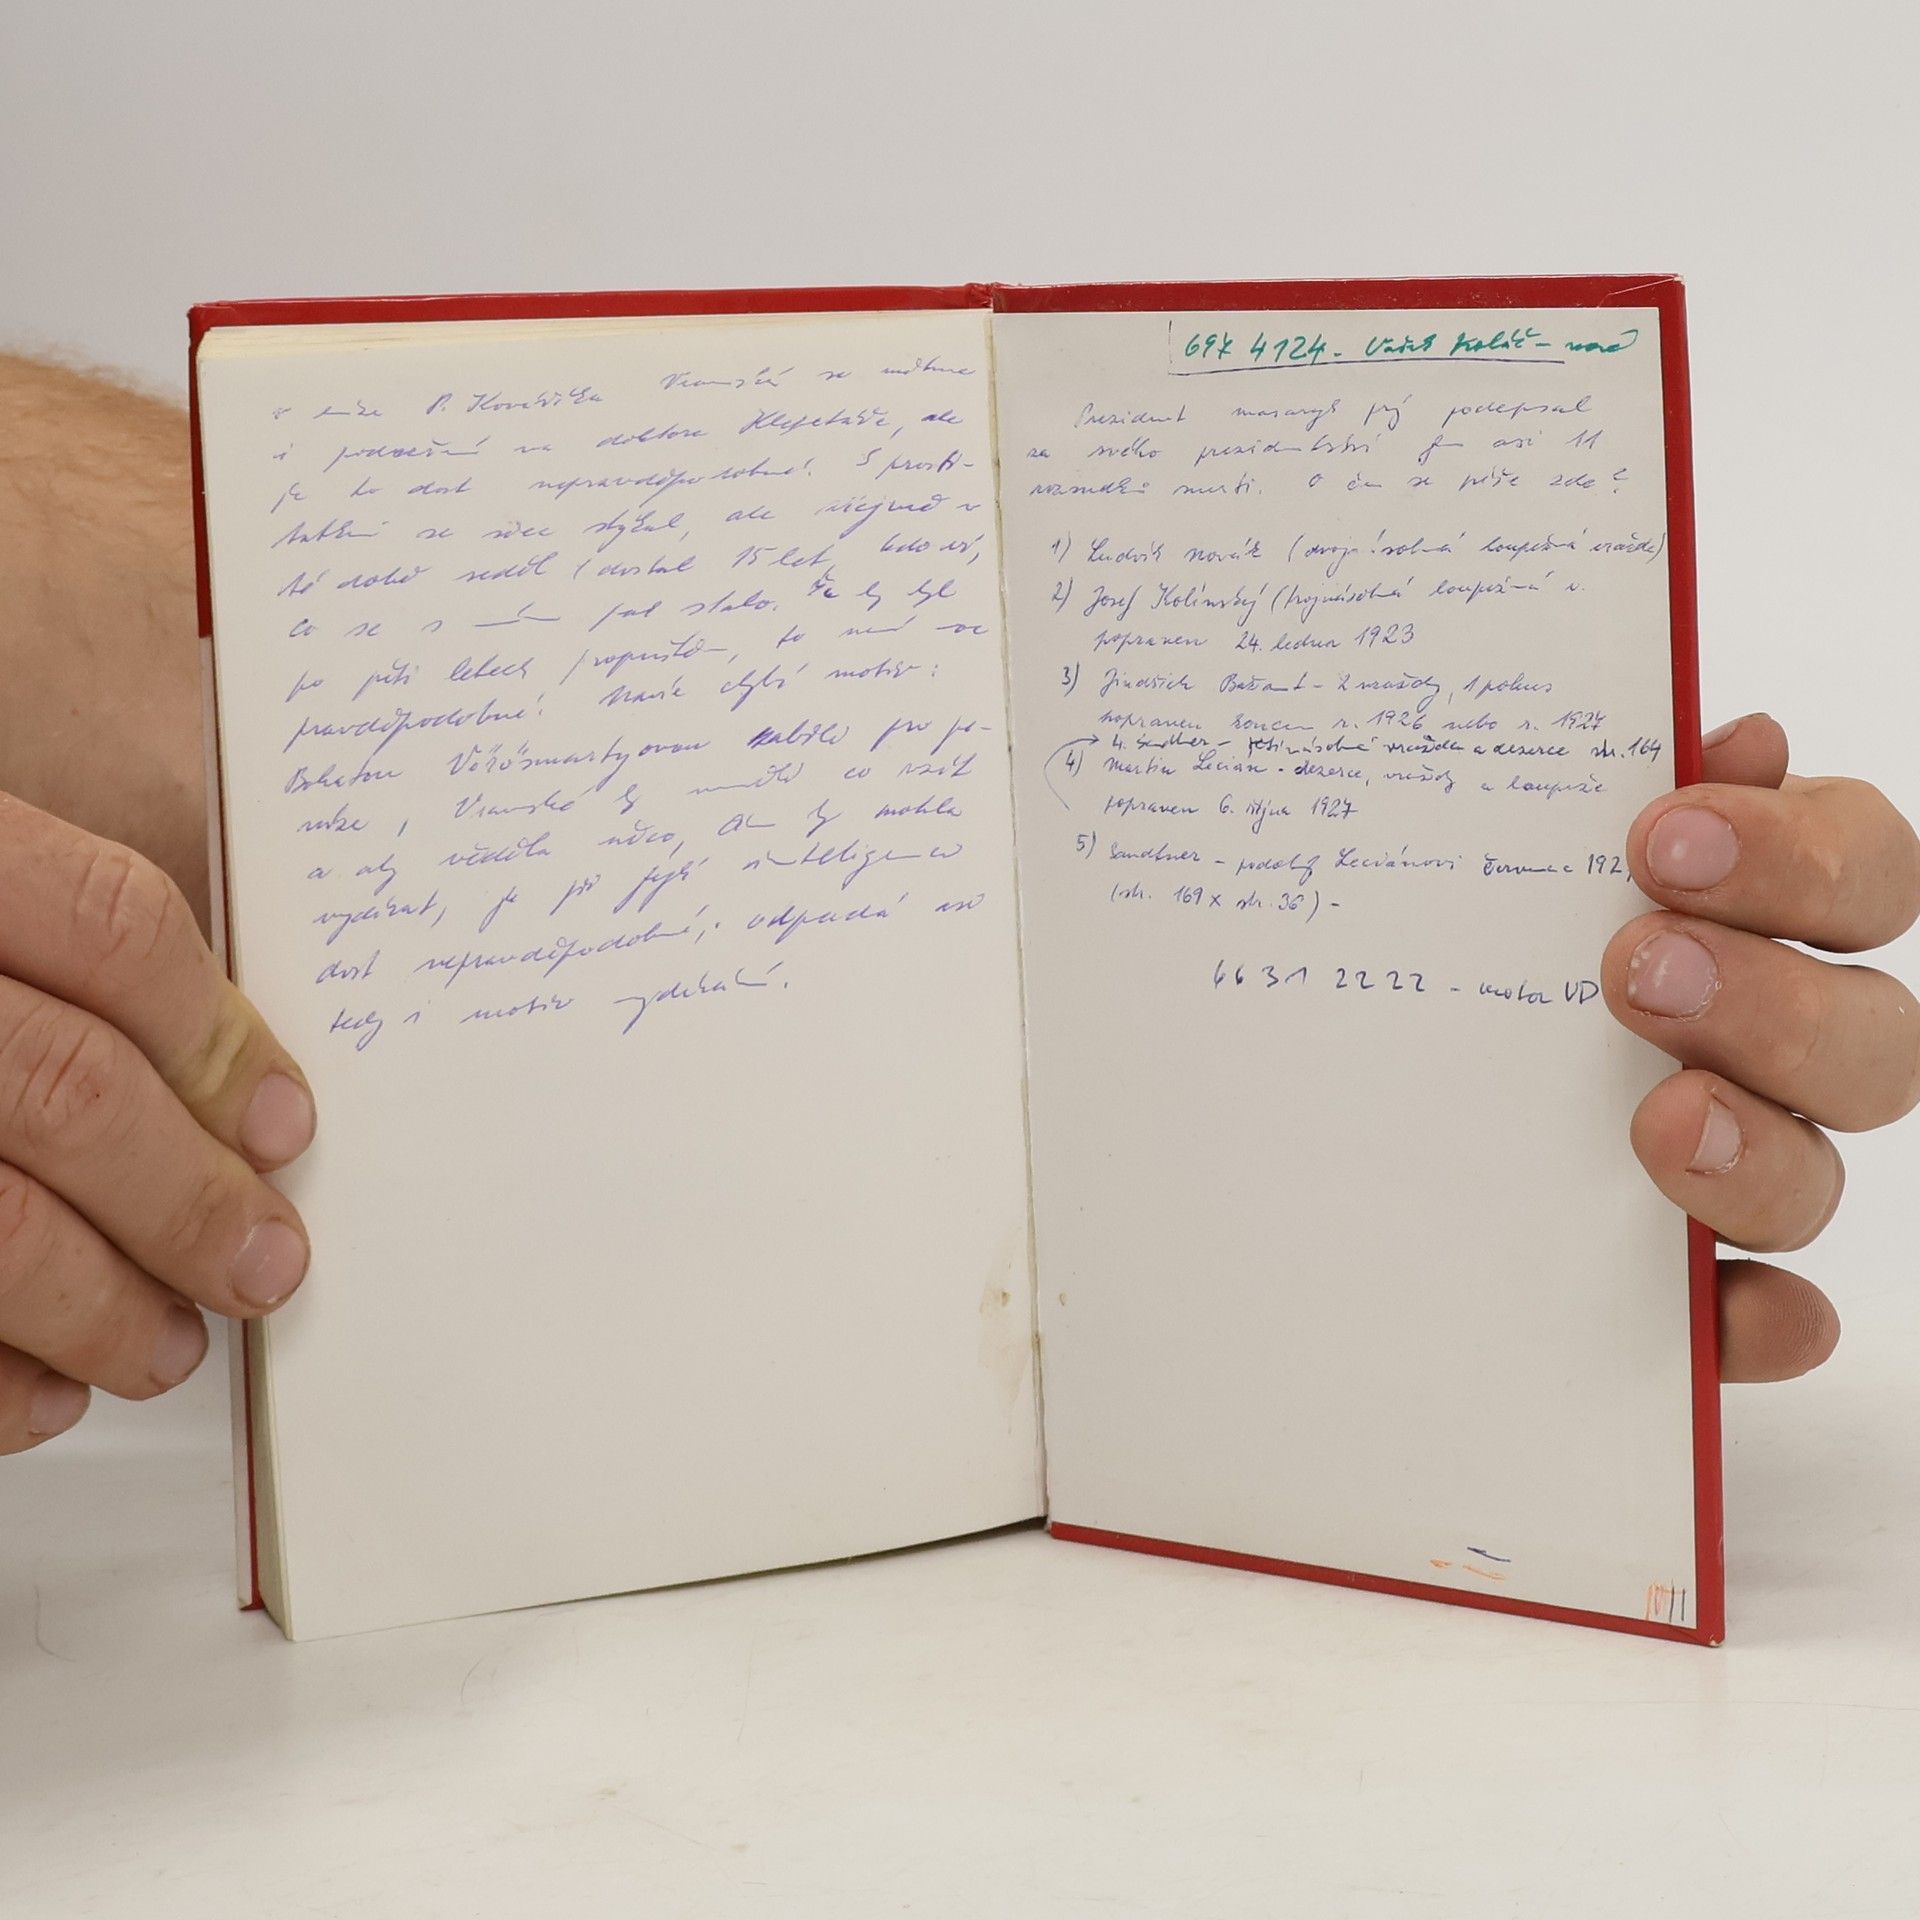 P. Kováříka Vranská se
i podezření na doktora Klepetáře, ale
je to dost nepravděpodobné! S prosti-
se sice stýkal, ale v
té době seděl (dostal 15 let, kdo ví,
co se s ním pak stalo. Že by byl
po pěti letech propuštěn, to není moc
pravděpodobné! Navíc chybí motiv:
Bohatou Vörösmartyovou zabilo pro pe-
níze, Vranské by neměl co vzít
a aby věděla něco, čím by mohla
vydírat, je při její inteligenci
dost nepravděpodobné; odpadá
tedy i motiv vydírání.
697 4124 - Vašek Kolář -
Prezident Masaryk prý podepsal
za svého prezidentství jen asi 11
rozsudků smrti. O čem se píše zde?
1) Ludvík Novák (dvojnásobná loupežná vražda)
2) Josef Kolínský (trojnásobná loupežná v.
popraven 24. ledna 1923
3) Jindřich Bažant - 2 vraždy, 1 pokus
popraven koncem r. 1926 nebo r. 1927
4. vražda a dezerce str. 164
4) Martin Lecian - dezerce, vraždy a loupeže
popraven 6. října 1927
5) Sandtner - podobný Leciánovi červenec 192
(str. 169 x str. 36) -
66 31 22 22 - motor VD